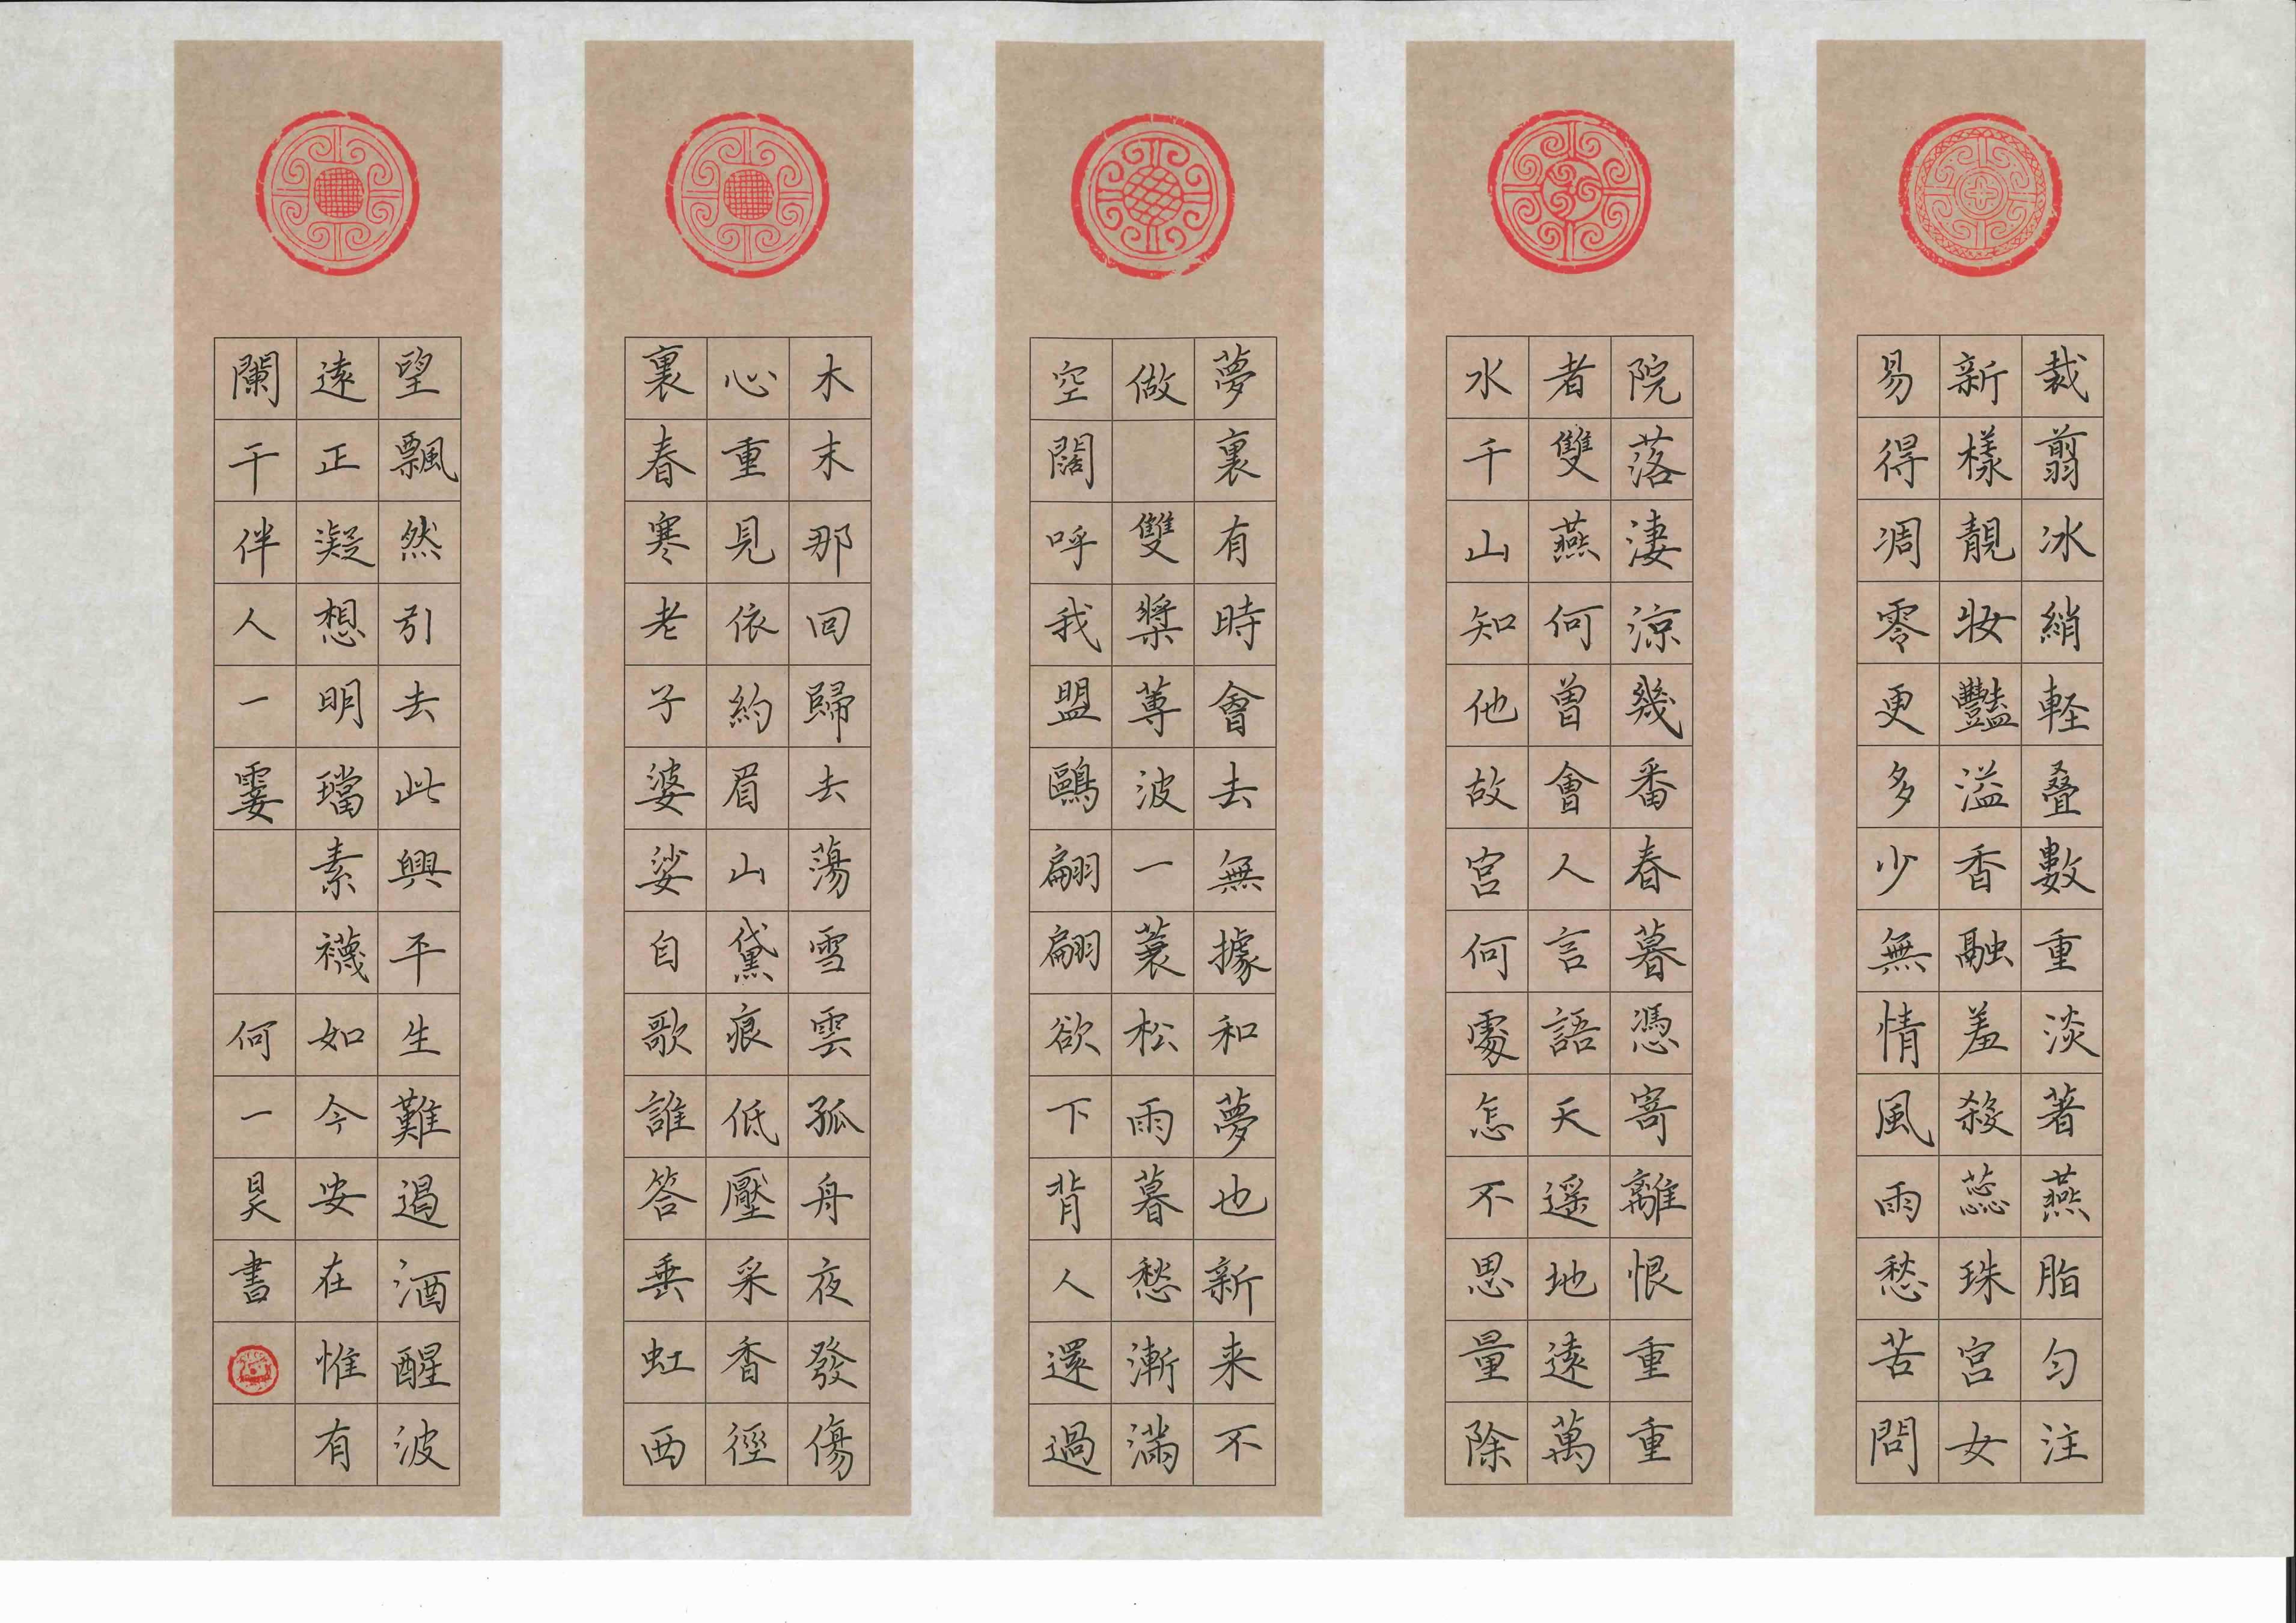 裁翦冰綃軽叠數重淡著燕脂匀注
新樣靚妝豔溢香融羞殺蕊珠宮女
易得凋零更多少無情風雨愁苦問
院落淒涼幾番春暮憑寄離恨重重
者雙燕何曾會人言語天遥地遠萬
水千山知他故宮何處怎不思量除
夢裏有時會去無據和夢也新来不
做 雙槳蓴波一蓑松雨暮愁漸滿
空闊呼我盟鷗翩翩欲下背人還過
木末那回歸去蕩雪雲孤舟夜發傷
心重見依約眉山黛痕低壓采香徑
裏春寒老子婆娑自歌誰答垂虹西
望飄然引去此興平生難遏酒醒波
遠正凝想明璫素襪如今安在惟有
闌干伴人一霎 何一昊書